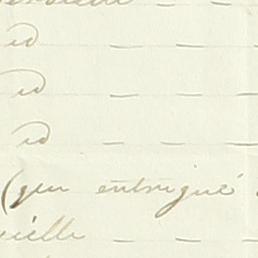 id — — —
id — — —
id — — —
(qui entrigué
uielle — — —